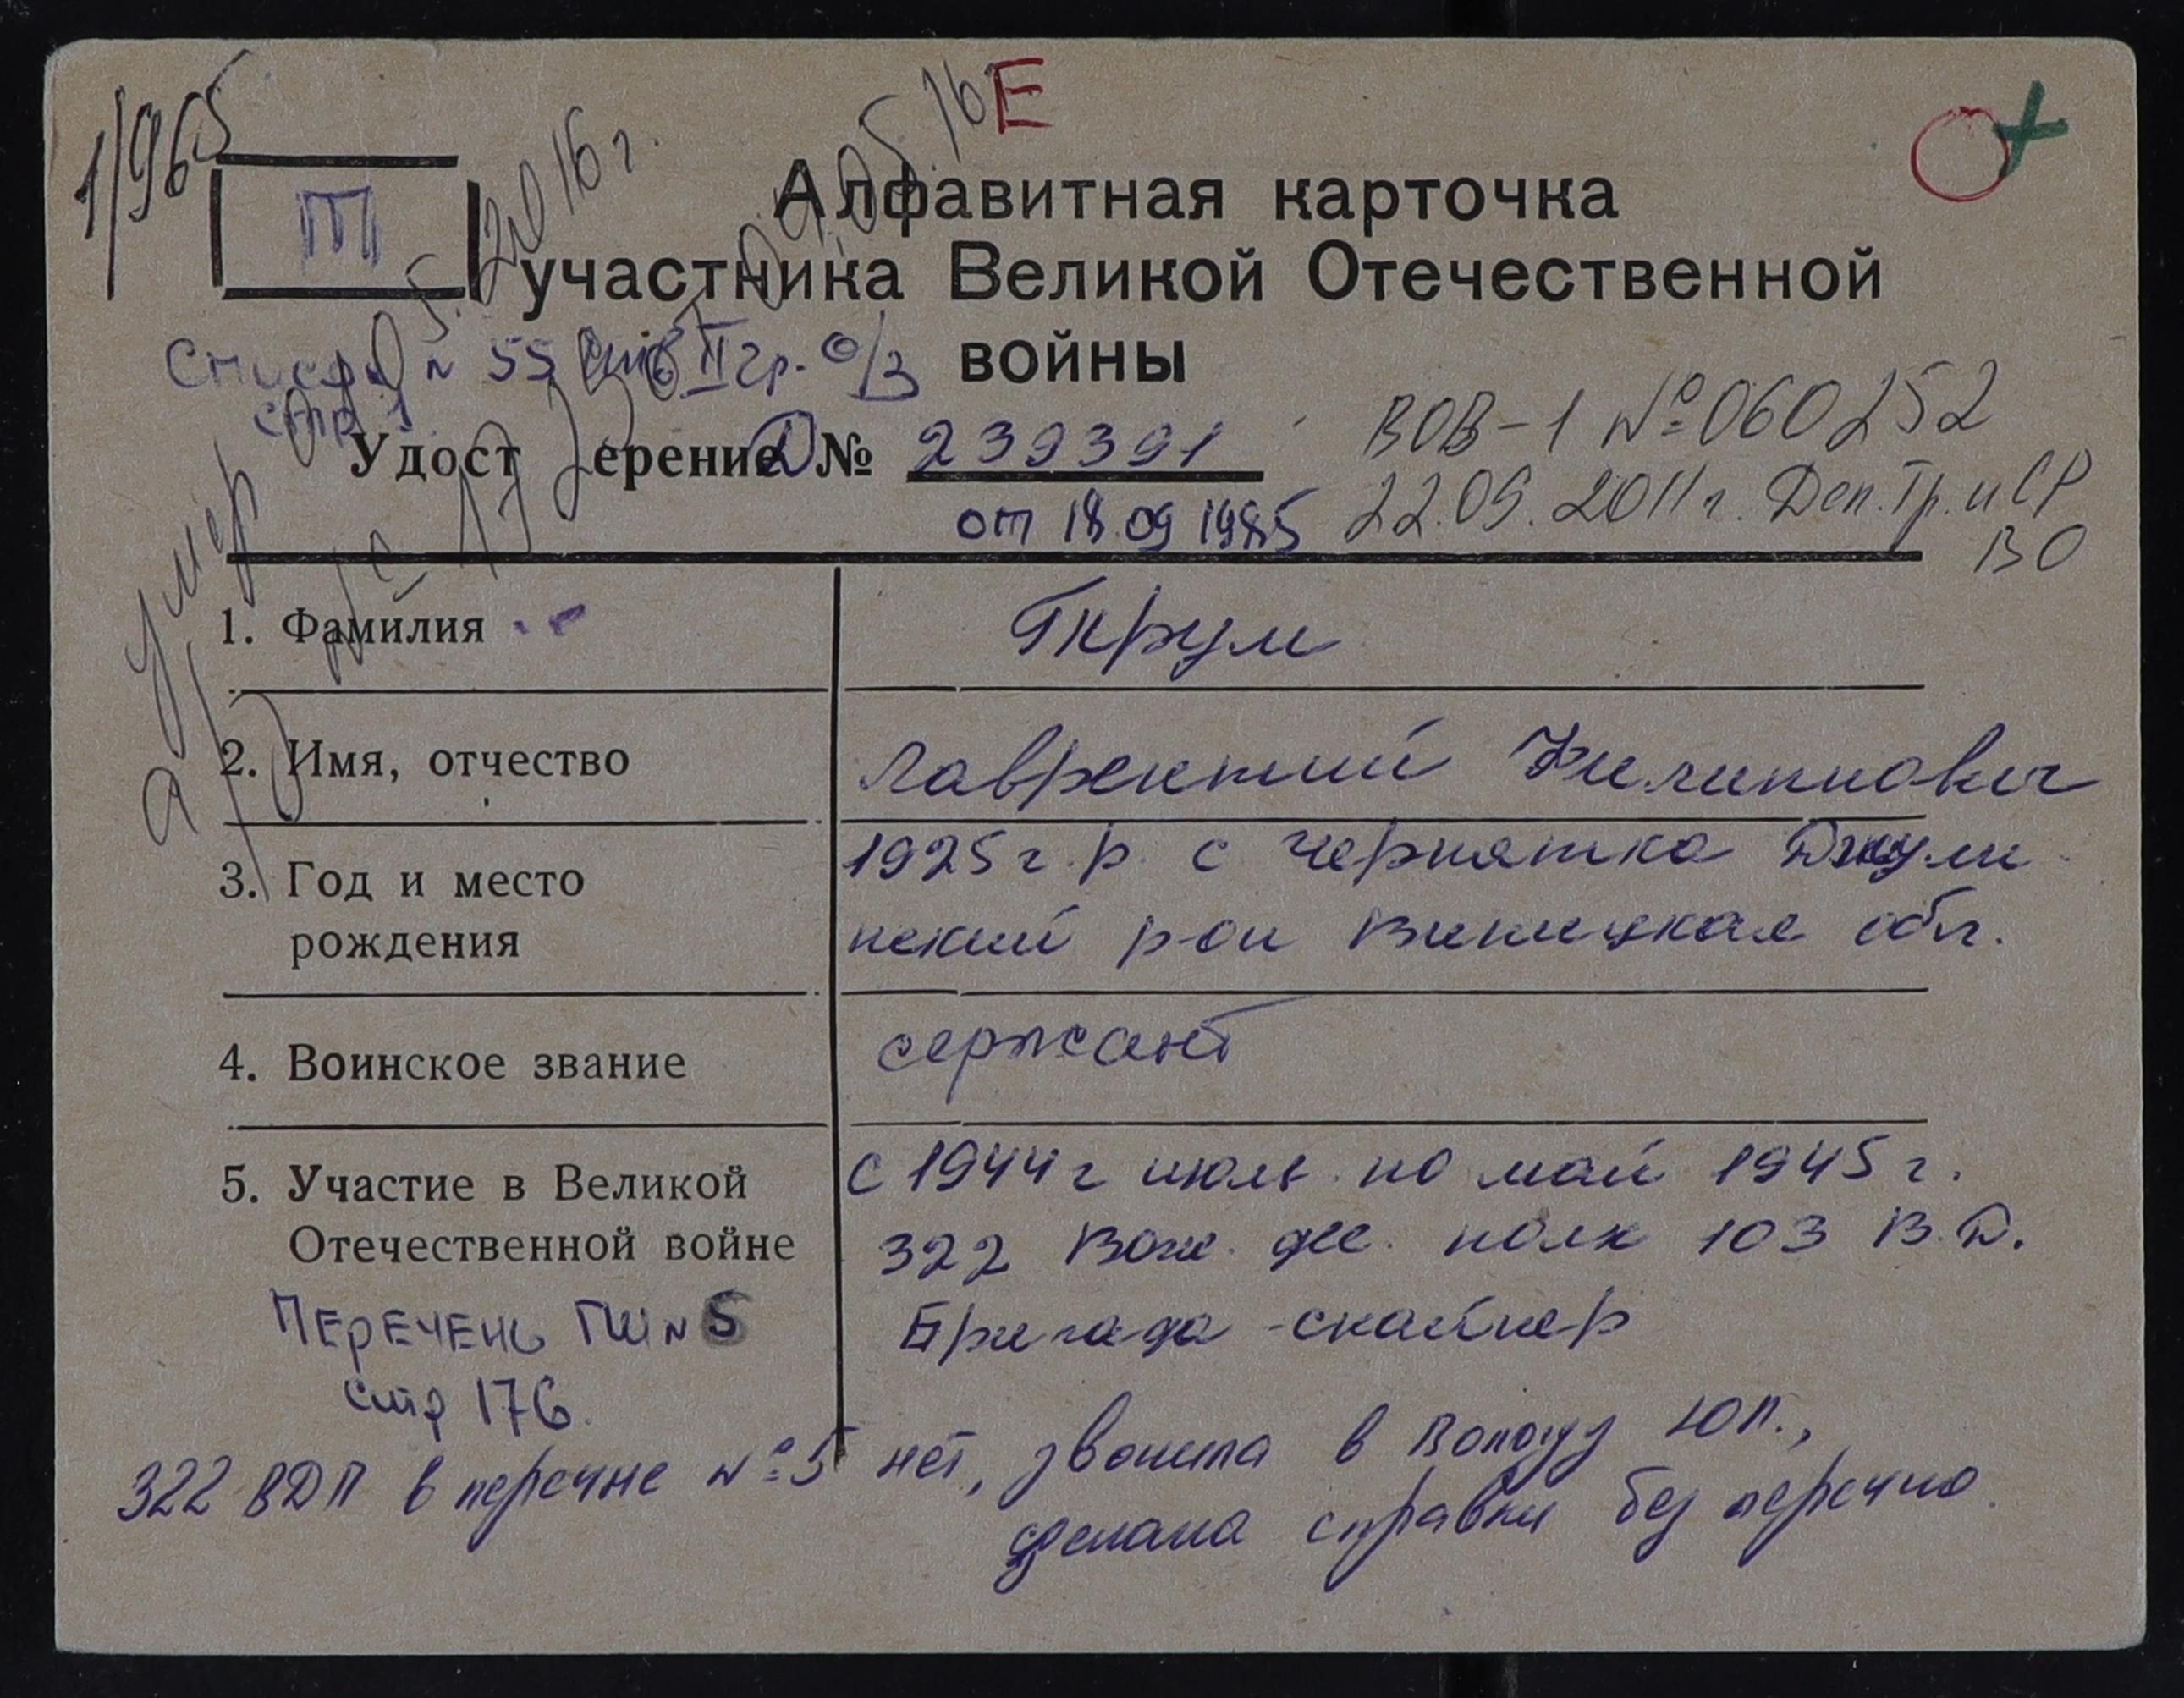 1/965
Е
Т
Алфавитная карточка
участника Великой Отечественной
войны
Список № 55 инв II гр. О/З
стр 1
Удостерение № 239391
от 18.09 1985
ВОВ-1 № 060252
22.09.2011г. Деп.Тр. и СР
ВО
умер
1. Фамилия
Ткрум
2. Имя, отчество
Лаврентий Филиппович
3. Год и место
рождения
1925 г.р. с Чернятка Джули
нский р-он Виницкая обл.
4. Воинское звание
сержант
5. Участие в Великой
Отечественной войне
с 1944г июль по май 1945 г.
322 Возд. дес. полк 103 В.Д.
Бригада - снайпер
ПЕРЕЧЕНЬ ГШ № 5
стр 176.
322 ВДП в перечне № 5 нет, звонила в Вологду ЮП.,
сделала справки без перечня.